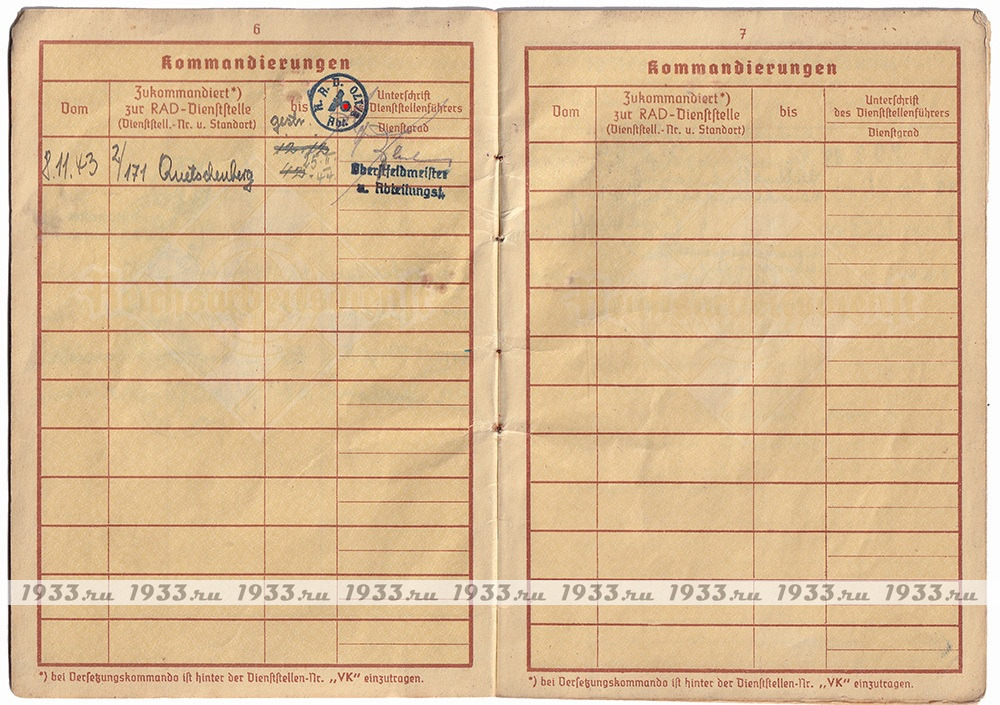 6
Kommandierungen
Vom
Zukommandiert*)
zur RAD-Dienststelle
(Dienststell.-Nr. u. Standort)
bis
Unterschrift
Dienststellenführers
Dienstgrad
R. A. D.
Abt.
gestr.
8.11.43
2/171 Quetschenberg
Oberstfeldmeister
u. Abteilungsf.
*) bei Versetzungskommando ist hinter der Dienststellen-Nr. „VK“ einzutragen.
7
Kommandierungen
Vom
Zukommandiert*)
zur RAD-Dienststelle
(Dienststell.-Nr. u. Standort)
bis
Unterschrift
des Dienststellenführers
Dienstgrad
*) bei Versetzungskommando ist hinter der Dienststellen-Nr. „VK“ einzutragen.
Reichsarbeitsdienst
Reichsarbeitsdienst
1933.ru 1933.ru 1933.ru 1933.ru 1933.ru 1933.ru 1933.ru 1933.ru 1933.ru